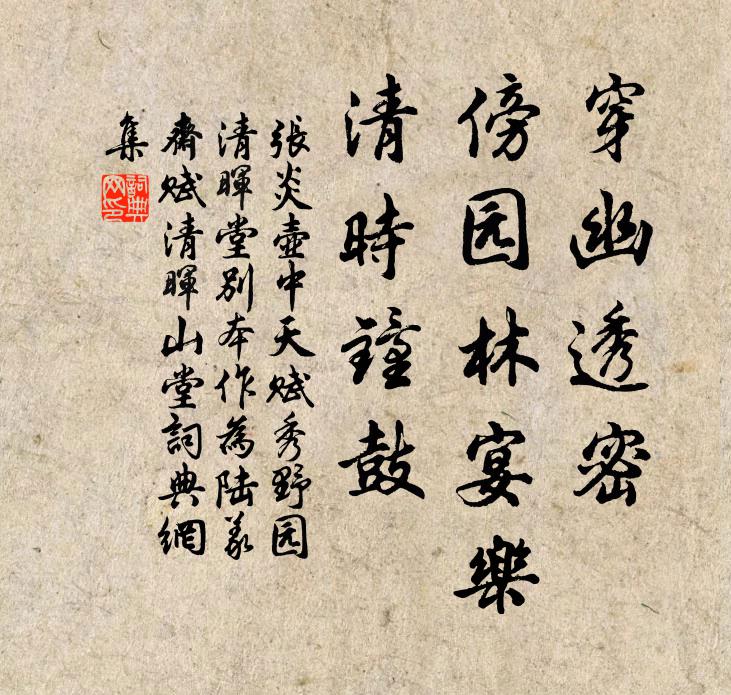 穿幽透密
傍园林宴樂
清時鐘鼓
張炎壺中天賦秀野园
清暉堂别本作為陆義
齋賦清暉山堂詞典網
集
詞典
网印